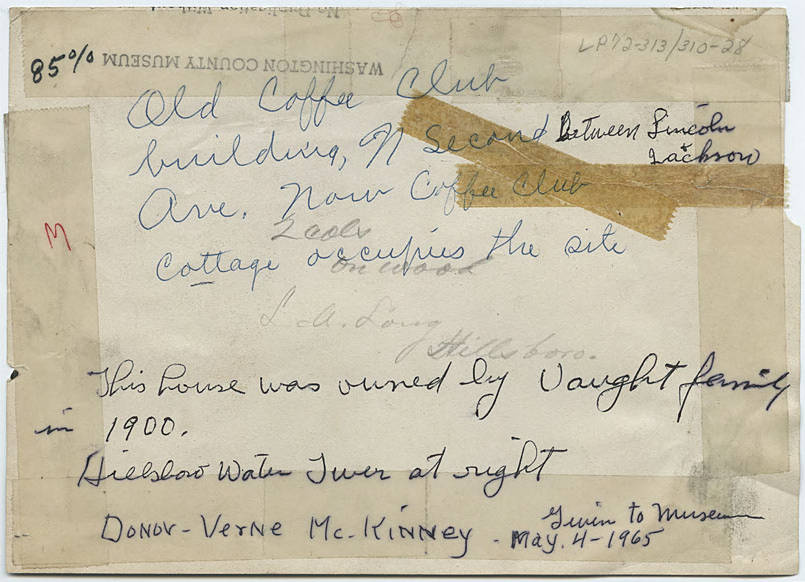 LP72-313/310-28
85%
WASHINGTON COUNTY MUSEUM
Old Coffee Club
building, N Second between Lincoln
& Jackson
Ave. Now Coffee Club
M
2 cols
cottage occupies the site
on wood
L. A. Long
Hillsboro.
This house was owned by Vaught family
in 1900.
Hillsboro Water Tower at right
Donor - Verne Mc. Kinney - Given to Museum
May. 4-1965